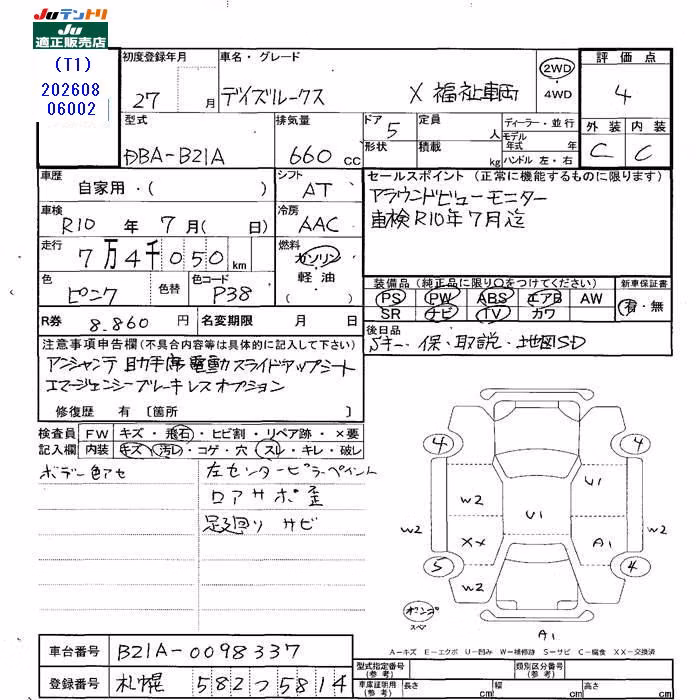 Juテントリ
Ju
適正販売店
(T1)
202608
06002
初度登録年月 車名・グレード 評価点
27 月 デイズルークス X 福祉車両 2WD 4WD 4
型式 排気量 ドア 定員 ディーラー・並行 外装 内装
DBA-B21A 660 cc 5 人 モデル年式 年 C C
形状 積載 kg ハンドル 左・右
車歴 自家用・( ) シフト AT
セールスポイント (正常に機能するものに限ります)
アラウンドビューモニター
車検R10年7月迄
車検 R10 年 7 月 ( 日) 冷房 AAC
走行 7万4千050 km 燃料 ガソリン 軽油 ( )
色 ピンク 色替 色コード P38
装備品 (純正品に限り○をつけてください) 新車保証書
PS PW ABS エアB AW 有・無
SR ナビ TV カワ
R券 8.860 円 名変期限 月 日
後日品
Sキー・保・取説・地図SD
注意事項申告欄(不具合内容等は具体的に記入して下さい)
アンシャンテ 助手席電動スライドアップシート
エマージェンシーブレーキレスオプション
修復歴 有 〔箇所 〕
検査員 FW キズ・飛石・ヒビ割・リペア跡・×要
記入欄 内装 キズ・汚レ・コゲ・穴・スレ・キレ・破レ
ボデー色アセ 左センターピラーペイント
ロアサポ歪
足廻り サビ
4 4
W2 U1
W2 U1 W2
XX A1
5 4
W2
スペア
A1
A=キズ E=エクボ U=凹み W=補修跡 S=サビ C=腐食 XX=交換済
車台番号 B21A-0098337
登録番号 札幌 582つ5814
型式指定番号(参考) 類別区分番号(参考)
車庫証明用(参考) 長さ cm 幅 cm 高さ cm